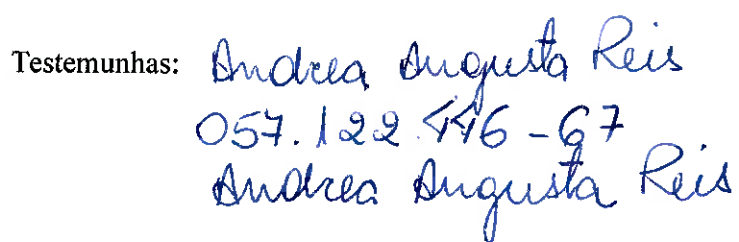 Testemunhas: Andrea Augusta Reis
057.122.446-67
Andrea Augusta Reis